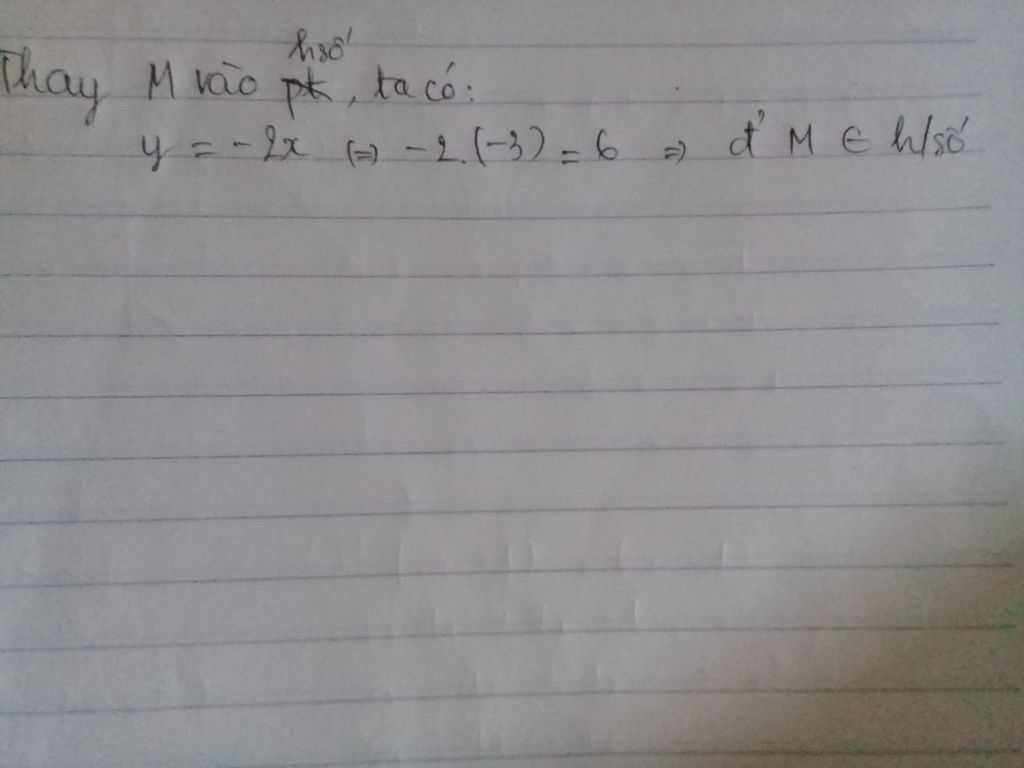 Thay M vào hsố, ta có:
y = -2x (=) -2.(-3) = 6 => đ' M ∈ h/số